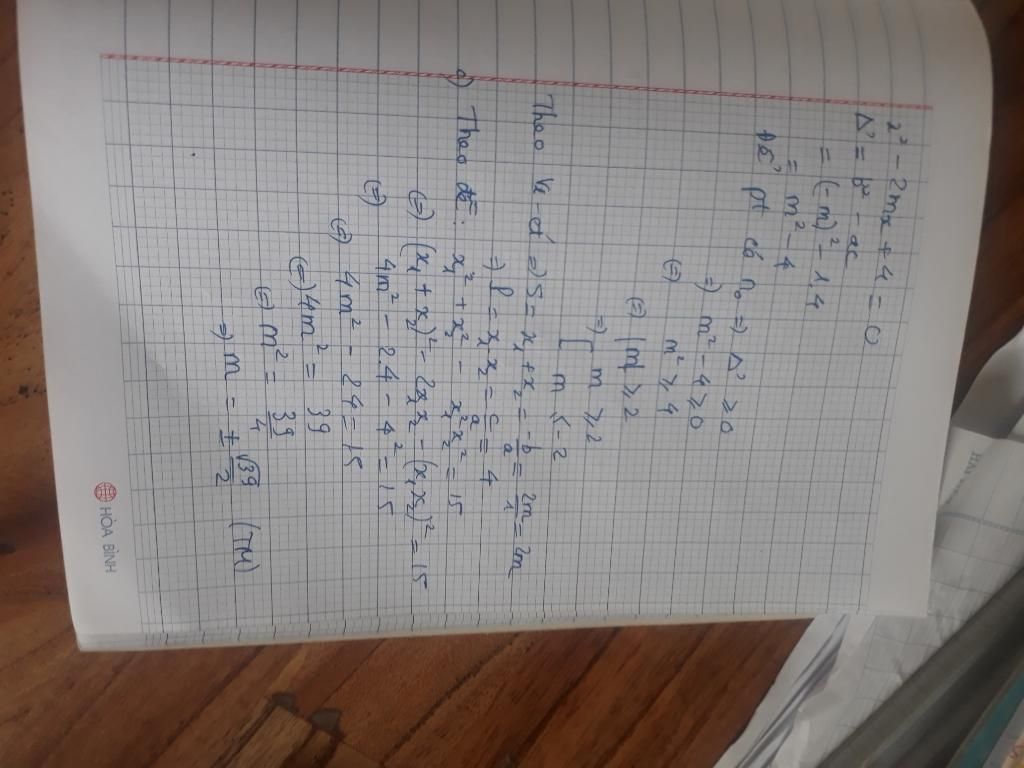 x² - 2mx + 4 = 0
Δ' = b'² - ac
= (-m)² - 1.4
= m² - 4
Để pt có n₀ => Δ' ≥ 0
=> m² - 4 ≥ 0
(=) m² ≥ 4
(=) |m| ≥ 2
=> [ m ≥ 2
m ≤ -2
Theo Vi-ét => S = x₁ + x₂ = -b/a = 2m/1 = 2m
=> P = x₁x₂ = c/a = 4
c) Theo đề: x₁² + x₂² - x₁²x₂² = 15
(=) (x₁ + x₂)² - 2x₁x₂ - (x₁x₂)² = 15
(=) 4m² - 2.4 - 4² = 15
(=) 4m² - 24 = 15
(=) 4m² = 39
(=) m² = 39/4
=> m = ±√39/2 (TM)
HÒA BÌNH